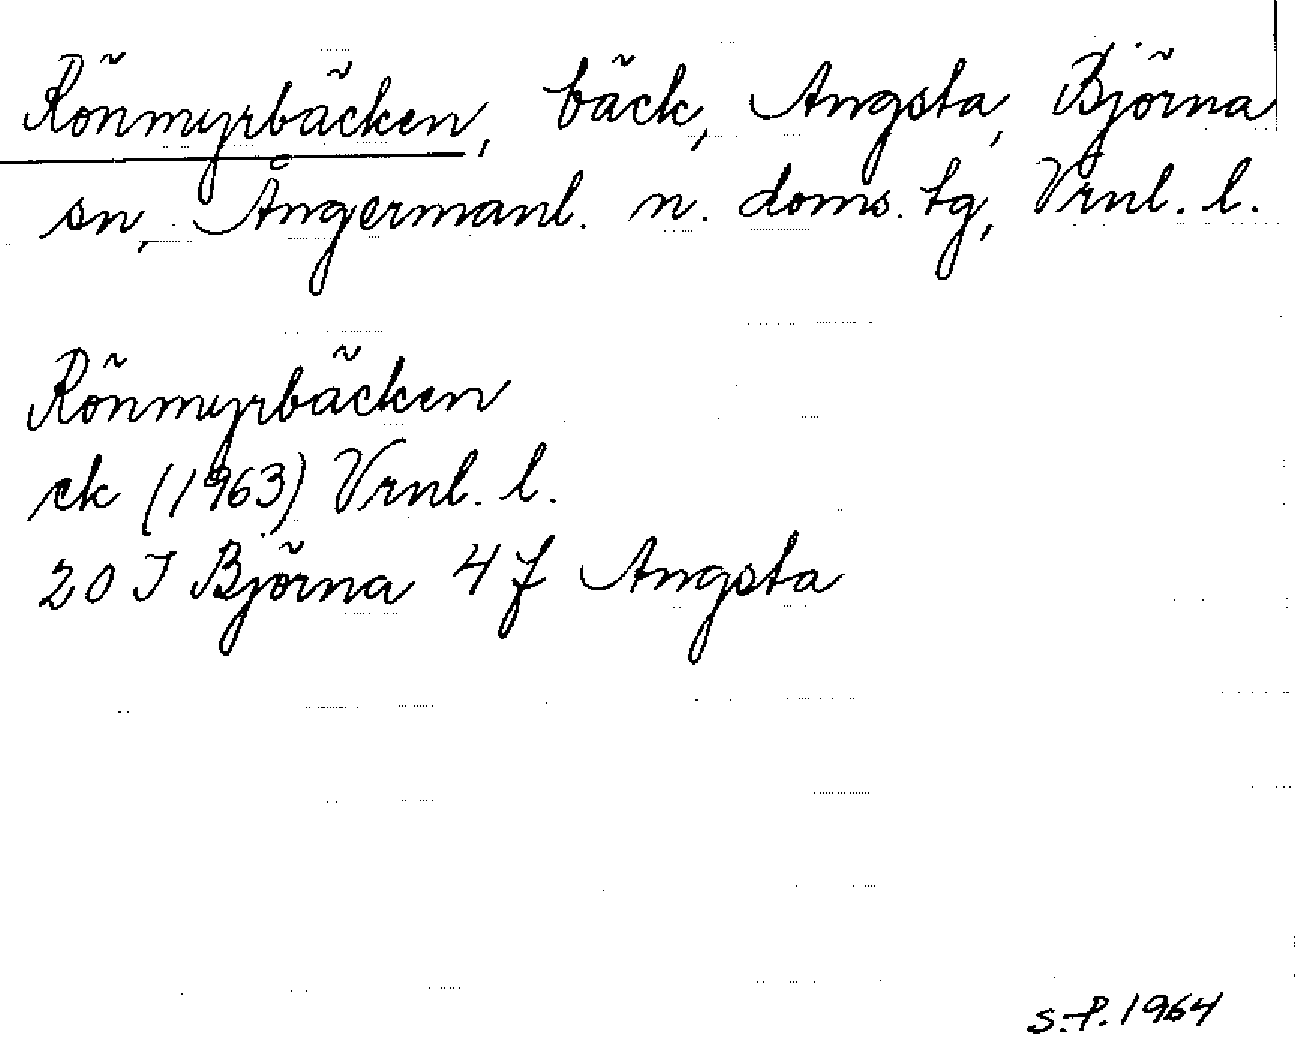 Rönmyrbäcken, bäck, Angsta, Björna
sn, Ångermanl. n. doms. tg, Vrnl. l.
Rönmyrbäcken
ek (1963) Vrnl. l.
20 I Björna 4 f Angsta
S.-P. 1964